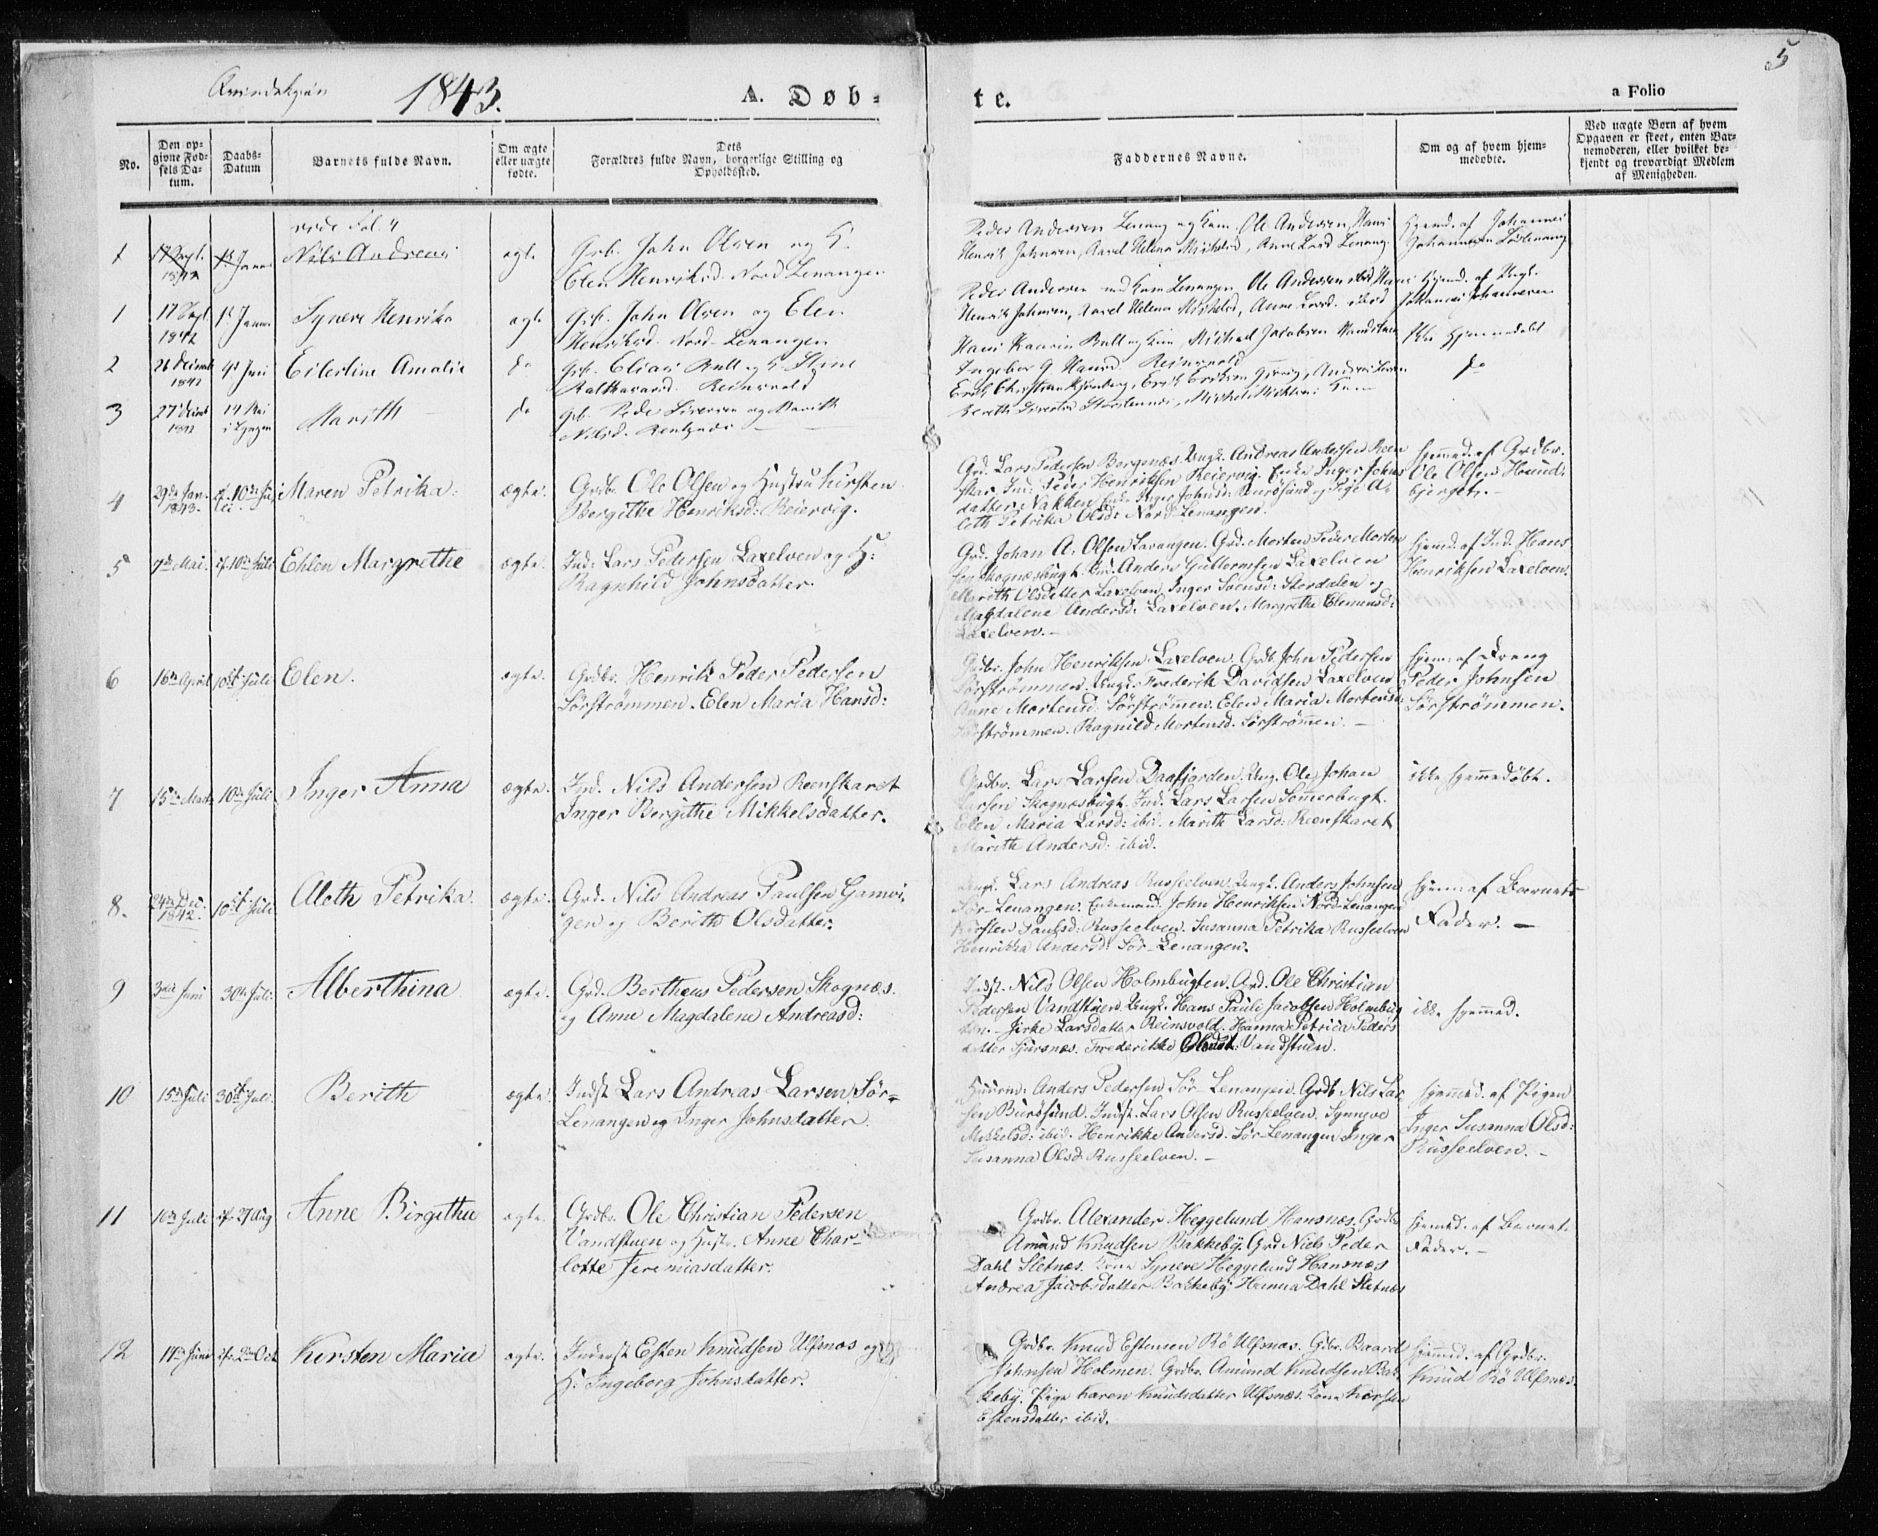 5
Qvindekjøn 1843. A. Døb-
te.
a Folio
No.
Den op-
givne Fød-
sels Da-
tum.
Daabs-
Datum
Barnets fulde Navn.
Om ægte
eller uægte
fødte.
Dets
Forældres fulde Navn, borgerlige Stilling og
Opholdssted.
Faddernes Navne.
Om og af hvem hjem-
medøbte.
Ved uægte Børn af hvem
Opgaven er skeet, enten Bar-
nemoderen, eller hvilket be-
kjendt og troværdigt Medlem
af Menigheden.
vide Fol. 4
1
17 Sept.
1842
Nils Andreas
ægte
Grb. John Olsen og H.
Elen Henriksd. Nord Lenangen
Peder Andersen Lenang og Kone. Ole Andersen
Henrik Johnsen, Maret Helena Mickelsd, Anne Larsd Lenang.
Hjemd. af Johannes
Johannesen
1
17 Sept.
1842
Synere Henrika
ægte
Grb. John Olsen og Elen
Henriksd. Nord-Lenangen
Peder Andersen med Kone Lenangen, Ole Andersen ibid
Henrik Johnsen, Maret Helena Mickelsd, Anne Larsd. ibid
Hjemd. af
Johannes Johannesen
2
26 Decemb
1842
Eilertine Amalie
do
Grb. Elias Bull og H. Stine
Balthasard. Reinsvold
Hans Kaarin Bull og Kone, Michael Jacobsen Vandstuen
Ingeber G. Hansd. Reinsvold
Ikke Hjemmedøbt
3
27 Decemb
1842
14 Mai
i Lyngen
Marith
do
Grb. Peder Siversen og Marith
Nilsd.
Erik Christian Kjønberg, Erik Eriksen Gjovig, Andreas
do
4
29de Jan.
1843.
10de Juli
Maren Petrika.
ægte.
Grdb. Ole Olsen og Hustru Kirsten
Bergithe Henriksd: Reiervig.
Grd. Lars Pedersen Bergenæs. Ungk. Andreas Andersen Reen
skar. Ind: Peder Henriksen Reiervig. Enke Inger Johns
datter Nakken. Enk. Inger Johnsd: Burøsund og Pige A-
leth Petrika Olsd: Nord-Lenangen.
hjemmed. af Grdbr.
Ole Olsen Hound:
bjerget. -
5
7de Mai.
10de Juli
Ehlen Margrethe
ægte.
Ind: Lars Pedersen Laxelven og H:
Ragnhild Johnsdatter.
Grd. Johan A. Olsen Lavangen. Grd. Morten Peder Morten
sen Skognæsbugt. Ind. Anders Guttormsen Laxelven
Marith Olsdatter Laxelven. Inger Svensd: Stordalen og
Magdalene Andersd: Laxelven. Margrethe Clemmsd:
Laxelven. -
hjemmd. af Ind. Hans
Henriksen Laxelven.
6
16de April
10de Juli
Elen.
ægte.
Grdbr. Henrik Peder Pedersen
Sørstrømmen. Elen Maria Hansd:
Grdbr. John Henriksen Laxelven. Grdb. John Pedersen
Sørstrømmen. Ungk. Frederik Davidsen Laxelven
Anne Mortensd: Sørstrømen. Elen Maria Mortensd:
Sørstrømmen. Ragnild Mortensd. Sørstrømen. -
hjem: af Dreng
Peder Johnsen
Sørstrømmen.
7
15de Marts
10de Juli
Inger Anna
ægte.
Ind. Nils Andersen Reenskaret
Inger Bergithe Mikkelsdatter.
Grdbr. Lars Larsen Daafjorden. Ung. Ole Johan
Larsen Skognæsbugt. Ind. Lars Larsen Somerbugt.
Elen Maria Larsd: ibid. Marith Larsd: Reenskaret
Marith Andersd: ibid.
ikke hjemmedøbt.
8.
24de Dec.
1842.
10de Juli
Aleth Petrika.
ægte.
Grd. Nils Andreas Paulsen Gamvi-
gen og Berith Olsdatter.
Ungk. Lars Andreas Russeelven. Ungk. Anders Johnsen
Sør-Lenangen. Enkemand John Henriksen Nord-Lenangen
Kirsten Paulsd: Russeelven. Susanna Petrika Russeelven
Henrikka Andersd: Sør-Lenangen.
hjem: af Barnets
Fader. -
9
3die Juni
30te Juli
Alberthina
ægte.
Grd. Bertheus Pedersen Skognæs.
og Anne Magdalene Andreasd:
Indst. Nils Olsen Holmbugten. Grd. Ole Christian
Pedersen Vandstuen. Ungk. Hans Paule Jacobsen Holmbug
ten. - Jirke Larsdatter Reinsvold. Hanna Petrica Peders
datter Sjursnæs. Frederikke Olsdat: Vandstuen.
ikke hjemmed.
10
15de Juli
30te Juli.
Berith
ægte.
Indst. Lars Andreas Larsen Sør-
Lenangen og Inger Johnsdatter.
Anders Pedersen Sør-Lenangen. Grdb. Nils Lar
sen Burøsund. Indst. Lars Olsen Russeelven. Synneve
Mikkelsd: ibid. Henrikke Andersd. Sør-Lenangen Inger
Susanna Olsd: Russeelven. -
hjemmed. af Pigen
Inger Susanna Olsd:
Russeelven. -
11
16de Juli
27 Aug
Anne Birgithe
ægte.
Grdbr. Ole Christian Pedersen
Vandstuen og Hustr. Anne Char-
lotte Jeremiasdatter.
Grdbr. Alexander Heggelund Hansnæs. Grdbr.
Amund Knudsen Bakkeby. Grd Niels Peder
Dahl Sletnæs. Kone Synere Heggelund Hansnæs
Andrea Jacobsdatter Bakkeby. Hanna Dahl Sletnæs
hjemmed. af Barnets
Fader. -
12
2den Oct
Kirsten Maria
ægte.
Inderst Esten Knudsen Ulfsnæs og
H. Ingeborg Johnsdatter.
Grdbr. Knud Estensen Rø Ulfsnæs. Grdbr. Baard
Johnsen Holmen. Grdbr. Amund Knudsen Bak-
keby. Pige Karen Knudsdatter Ulfsnæs. Kone Kirsten
Estensdatter ibid.
hjemmed. af Grdbr.
Knud Rø Ulfsnæs.